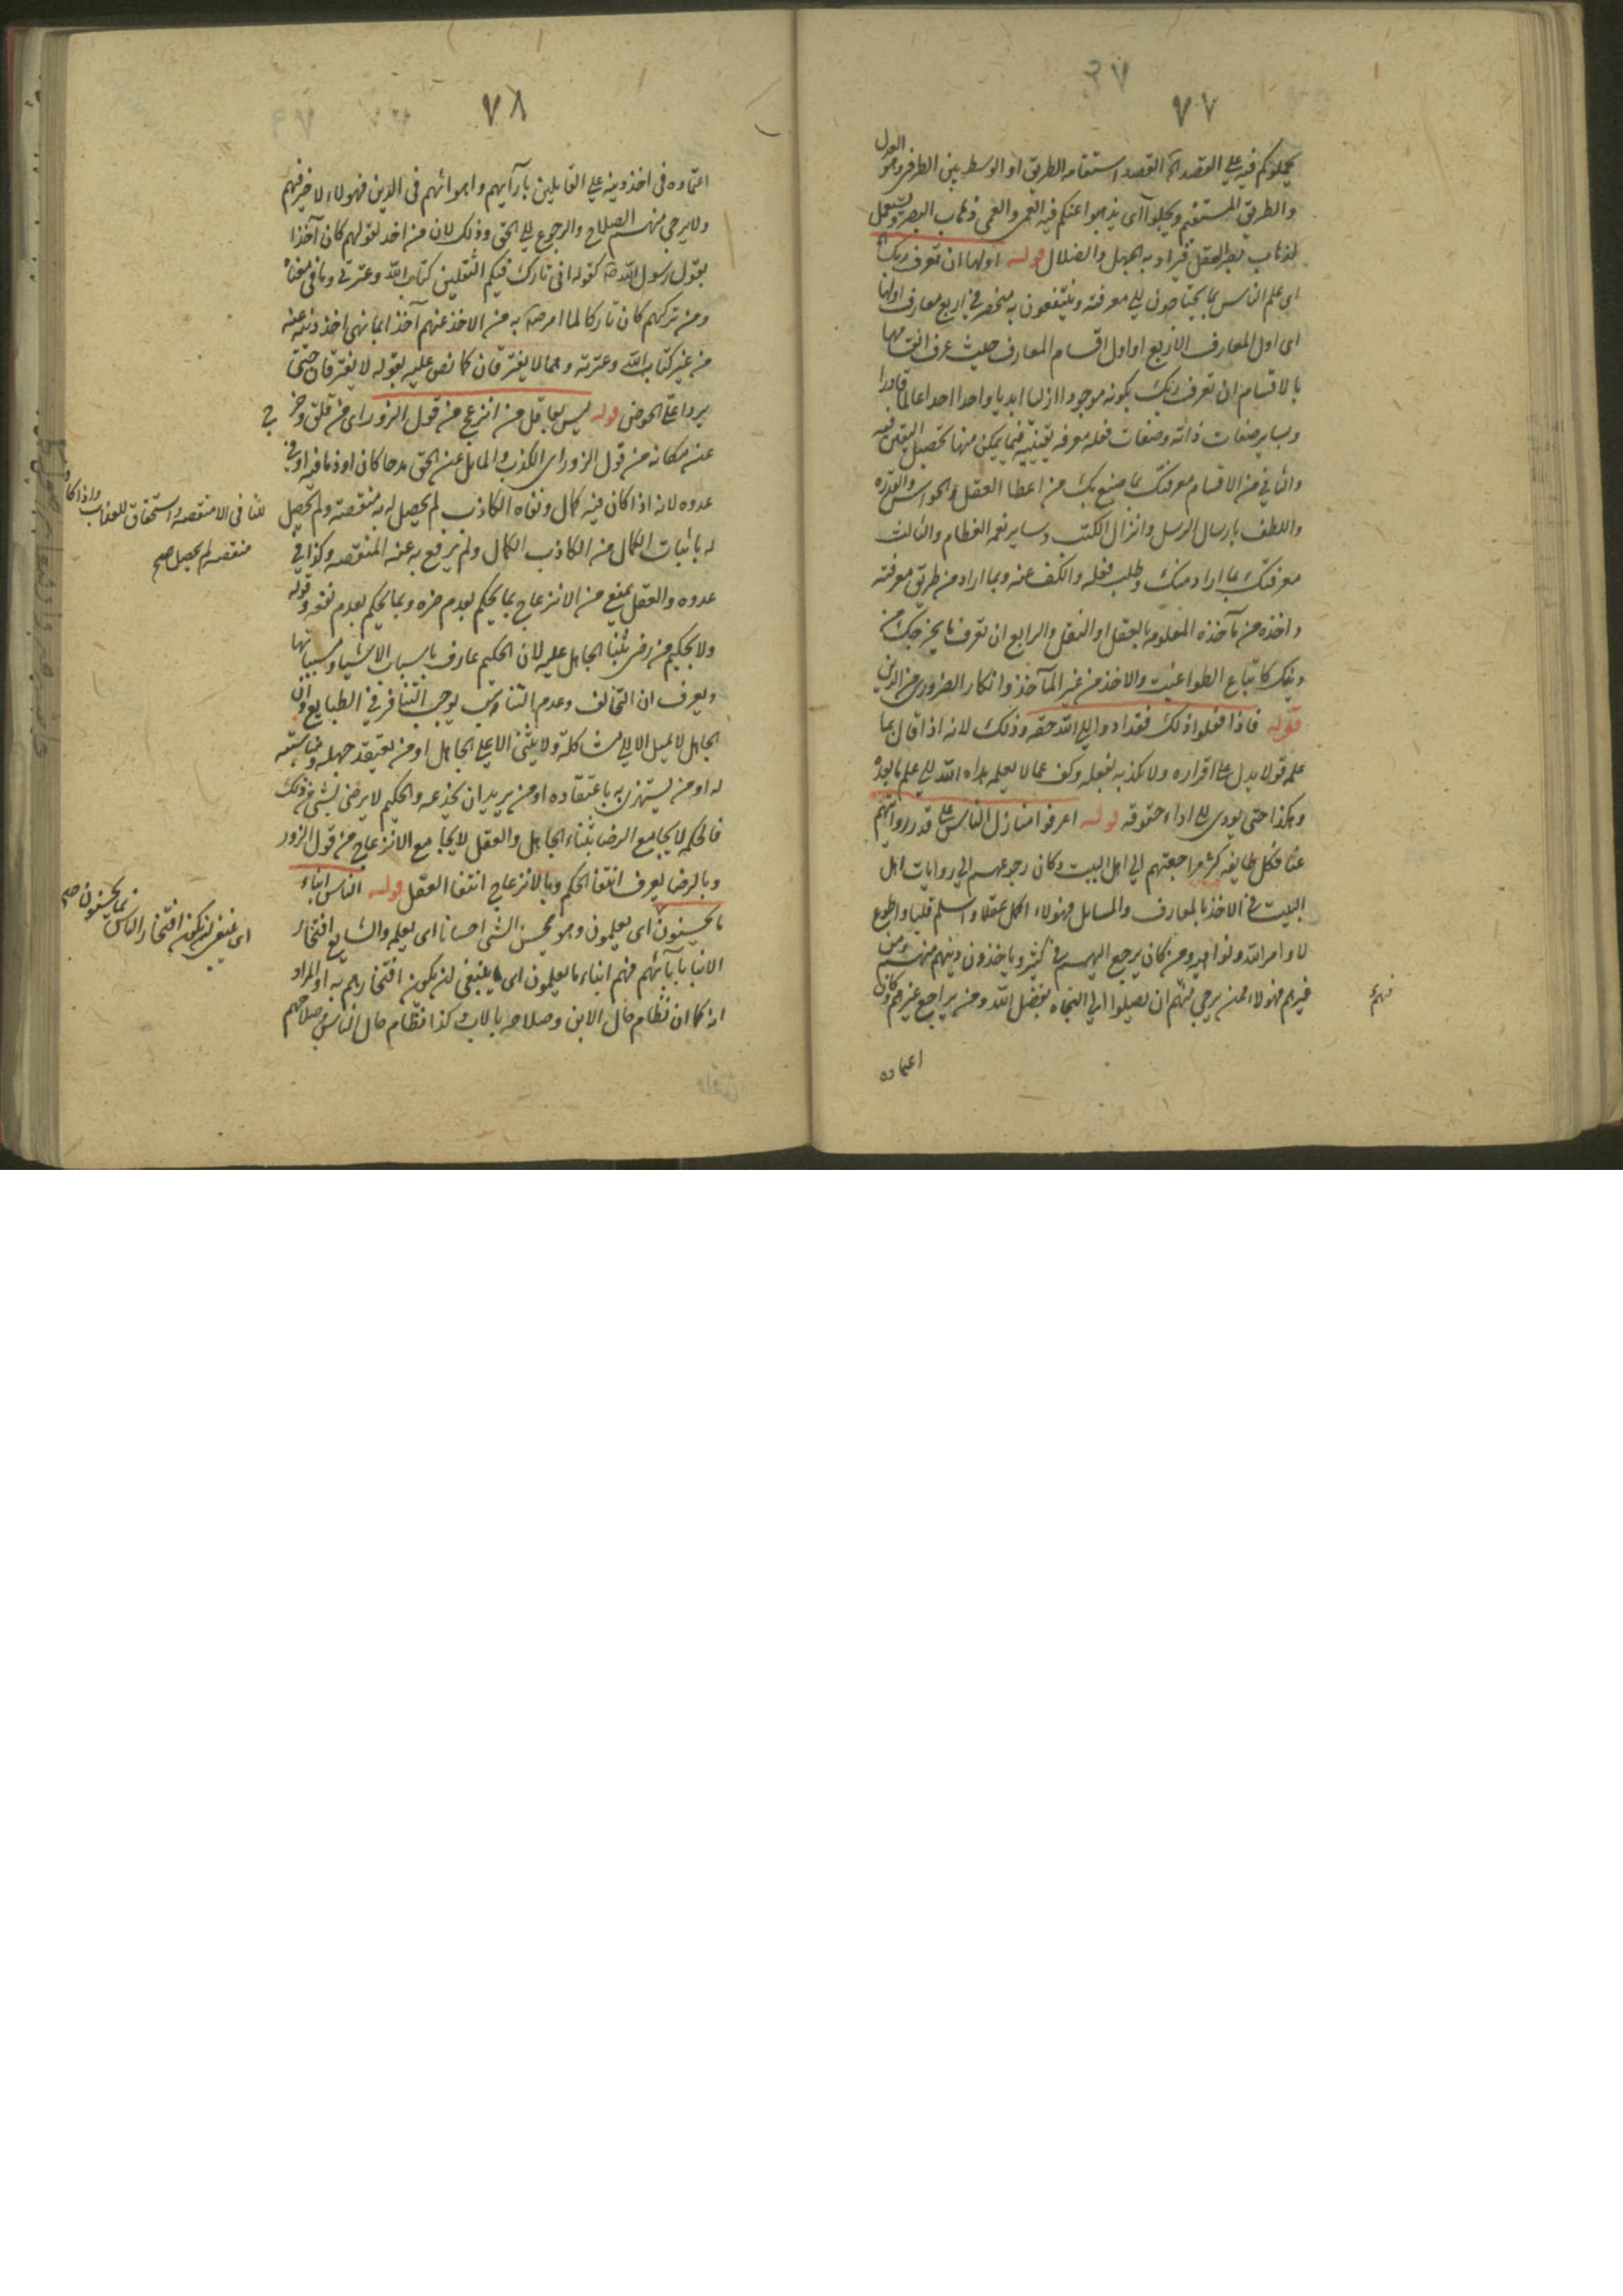 ٧٧
يحملوكم فيه على القصد اه القصد استقامه الطريق او الوسط بين الطرفين وهو العدل
والطريق المستقيم ويجلوا اى يذهبوا عنكم فيه العمى والعمى ذهاب البصر ويستعمل
لذهاب بصر العقل فيراد به الجهل والضلال قوله اولها ان تعرف ربك اه
اى علم الناس بما يحتاجون الى معرفته وينتفعون به منحصر في اربع معارف اولها
اى اول المعارف الاربع او اول اقسام المعارف حيث عرف انقسامها
بالاقسام ان تعرف ربك بكونه موجودا ازليا ابديا واحدا احدا عالما قادرا
وبساير صفات ذاته وصفات فعله معرفه يقينيه فيما يمكن منها تحصيل اليقين فيه
والثاني من الاقسام معرفتك بما صنع بك من اعطا العقل والحواس والقدره
واللطف بارسال الرسل وانزال الكتب وساير نعمه العظام والثالث
معرفتك بما اراد منك وطلب فعله والكف عنه وبما اراد من طريق معرفته
واخذه من مآخذه المعلومه بالعقل او النقل والرابع ان تعرف ما يخرجك من
دينك كاتباع الطواغيت والاخذ من غير المآخذ وانكار الضرورى من الدين
قوله فاذا فعلوا ذلك فقد ادوا الى الله حقه وذلك لانه اذا قال بما
علمه قولا يدل على اقراره ولا يكذبه بفعله وكف عما لا يعلمه هداه الله الى علم ما بعده
وهكذا حتى يودى الى اداء حقوقه قوله اعرفوا منازل الناس على قدر روايتهم
عنا فكل طايفه كثر مراجعتهم الى اهل البيت وكان رجوعهم الى روايات اهل
البيت في الاخذ بالمعارف والمسايل فهولاء اكمل عقلا واسلم قلبا واطوع
لاوامر الله ونواهيه ومن كان يرجع اليهم في كثير وياخذون دينهم منهم ومن
غيرهم فهولاء ممن يرجى منهم ان يصلوا الى النجاه بفضل الله ومن يراجع غيرهم وكان
فهم
اعتماده
٧٨
اعتماده في اخذ دينه على القايلين بآرايهم واهوائهم في الدين فهولاء لا خير فيهم
ولا يرجى منهم الصلاح والرجوع الى الحق وذلك لان من اخذ بقولهم كان آخذا
بقول رسول الله ص كقوله انى تارك فيكم الثقلين كتاب الله وعترتي وما في معناه
ومن تركهم كان تاركا لما امر ص به من الاخذ عنهم آخذا بما نهى اخذ دينه عنه
من غير كتاب الله وعترته وهما لا يفترقان كما نص عليه بقوله لا يفترقان حتى
يردا على الحوض قوله ليس بعاقل من انزعج من قول الزور اى من قلق وخرج
عن مكانه من قول الزور اى الكذب والمايل عن الحق مدحا كان او ذما فيه او في
عدوه لانه اذا كان فيه كمال ونفاه الكاذب لم يحصل له به منقصة ولم يحصل
له باثبات الكمال من الكاذب الكمال ولم يرفع به عنه المنقصه وكذا في
عدوه والعقل يمنع من الانزعاج بما يحكم بعدم ضره وبما يحكم بعدم نفعه وقوله
ولا بحكيم من رضى بثناء الجاهل عليه لان الحكيم عارف باسباب الاشياء ومسبباتها
ويعرف ان التخالف وعدم التناسب يوجب التنافر في الطبايع وان
الجاهل لا يميل الا الى مشاكله ولا يثنى الا على الجاهل او من يعتقد جهله ومناسبته
له او من يستهزئ به باعتقاده او من يريد ان يخدعه والحكيم لا يرضى بشى من ذلك
فالحكمه لا يجامع الرضا بثناء الجاهل والعقل لا يجامع الانزعاج من قول الزور
وبالرضا يعرف انتفا الحكم وبالانزعاج انتفا العقل قوله الناس ابناء
ما يحسنون اى يعلمون وهو يحسن الشى احسانا اى يعلمه والشايع افتخار
الابنا بآبائهم فهم ابناء ما يعلمون اى ينبغى ان يكون افتخارهم به او المراد
انه كما ان نظام حال الابن وصلاحه بالاب كذا نظام حال الناس وصلاحهم
للنافى الا منقصه واستحقاق للعذاب واذا كا
منقصه لم يحصل صح
اى ينبغى ان يكون افتخار الناس بما يحسنون صح